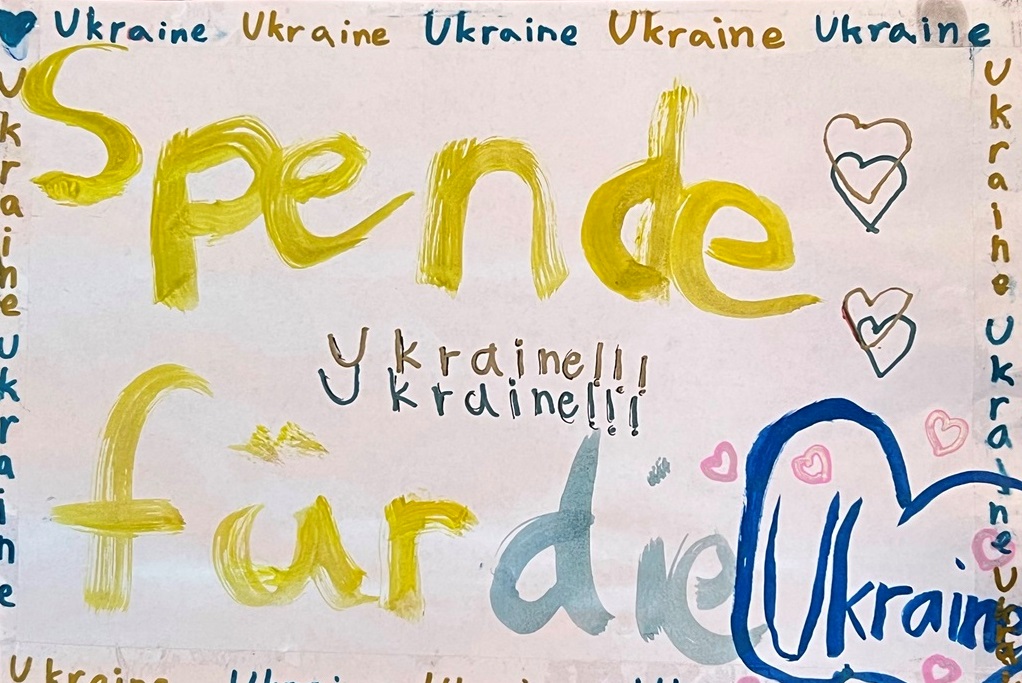 Ukraine Ukraine Ukraine Ukraine Ukraine
Ukraine Ukraine
Spende
Ykraine!!!
Ykraine!!!
für die
Ukraine
Ukraine Ukraine
Ukraine